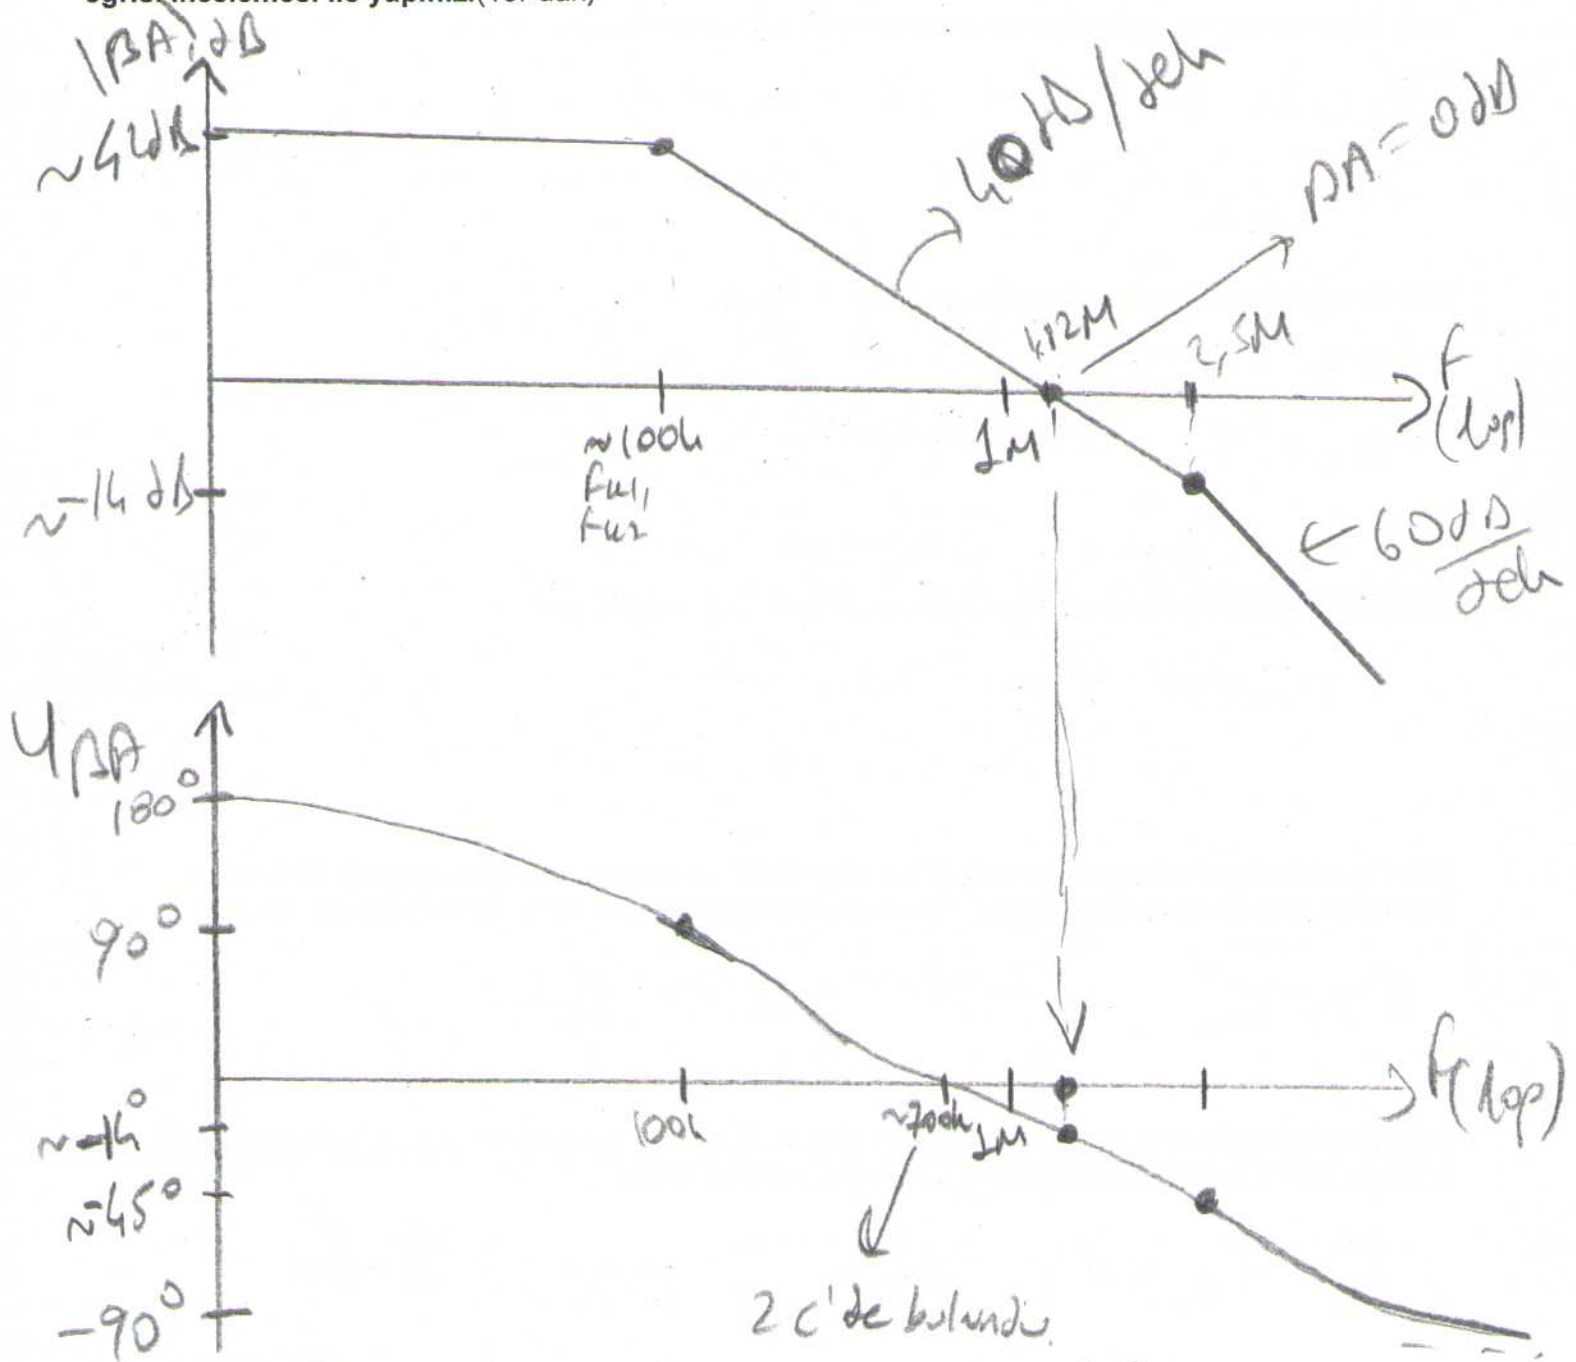 |βA| dB
~42dB
40 dB/dek
βA = 0dB
1,12M
2,5M
f
(log)
~100k
fk1,
fk2
1M
~-14 dB
← 60 dB/dek
φβA
180°
90°
~-14°
~-45°
-90°
100k
~700k
1M
f(log)
2 c'de bulundu.